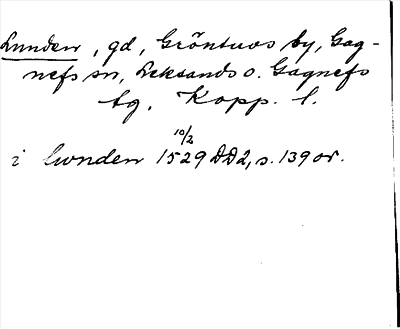 Lunden, gd, Gröntuvs by, Gag-
nefs sn, Leksands o. Gagnefs
tg, Kopp. l.
10/2
i lunden 1529 DD2, s. 139 or.